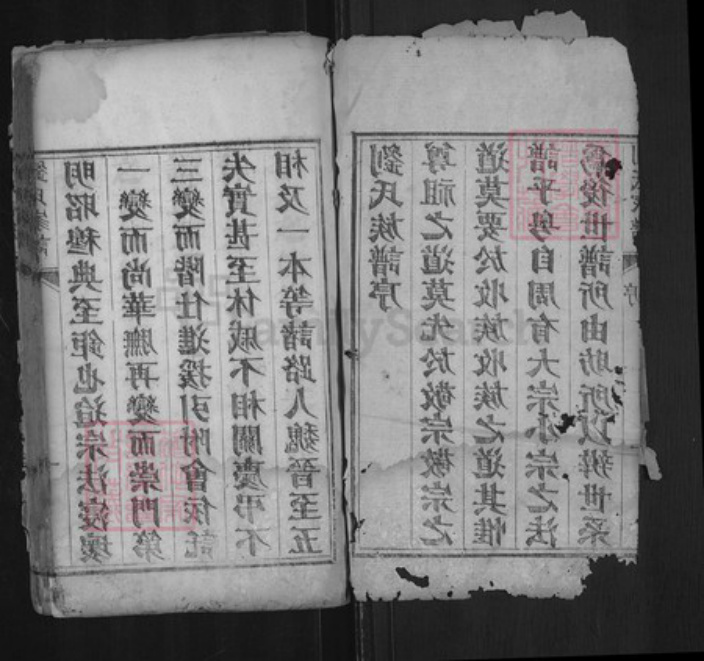 劉氏族譜序
尊祖之道莫先於敬宗敬宗之
道莫要於收族收族之道其惟
譜乎粵自周有大宗小宗之法
為後世譜所由昉所以辨世系
序
劉氏家譜
明昭穆典至鉅也迨宗法寖壞
一變而尚華膴再變而崇門第
三變而階仕進援引附會依託
失實甚至休戚不相關慶弔不
相及一本等諸路人魏晉至五
FamilySearch